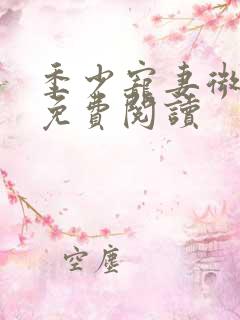 季少寵妻微
免費閱讀
空塵